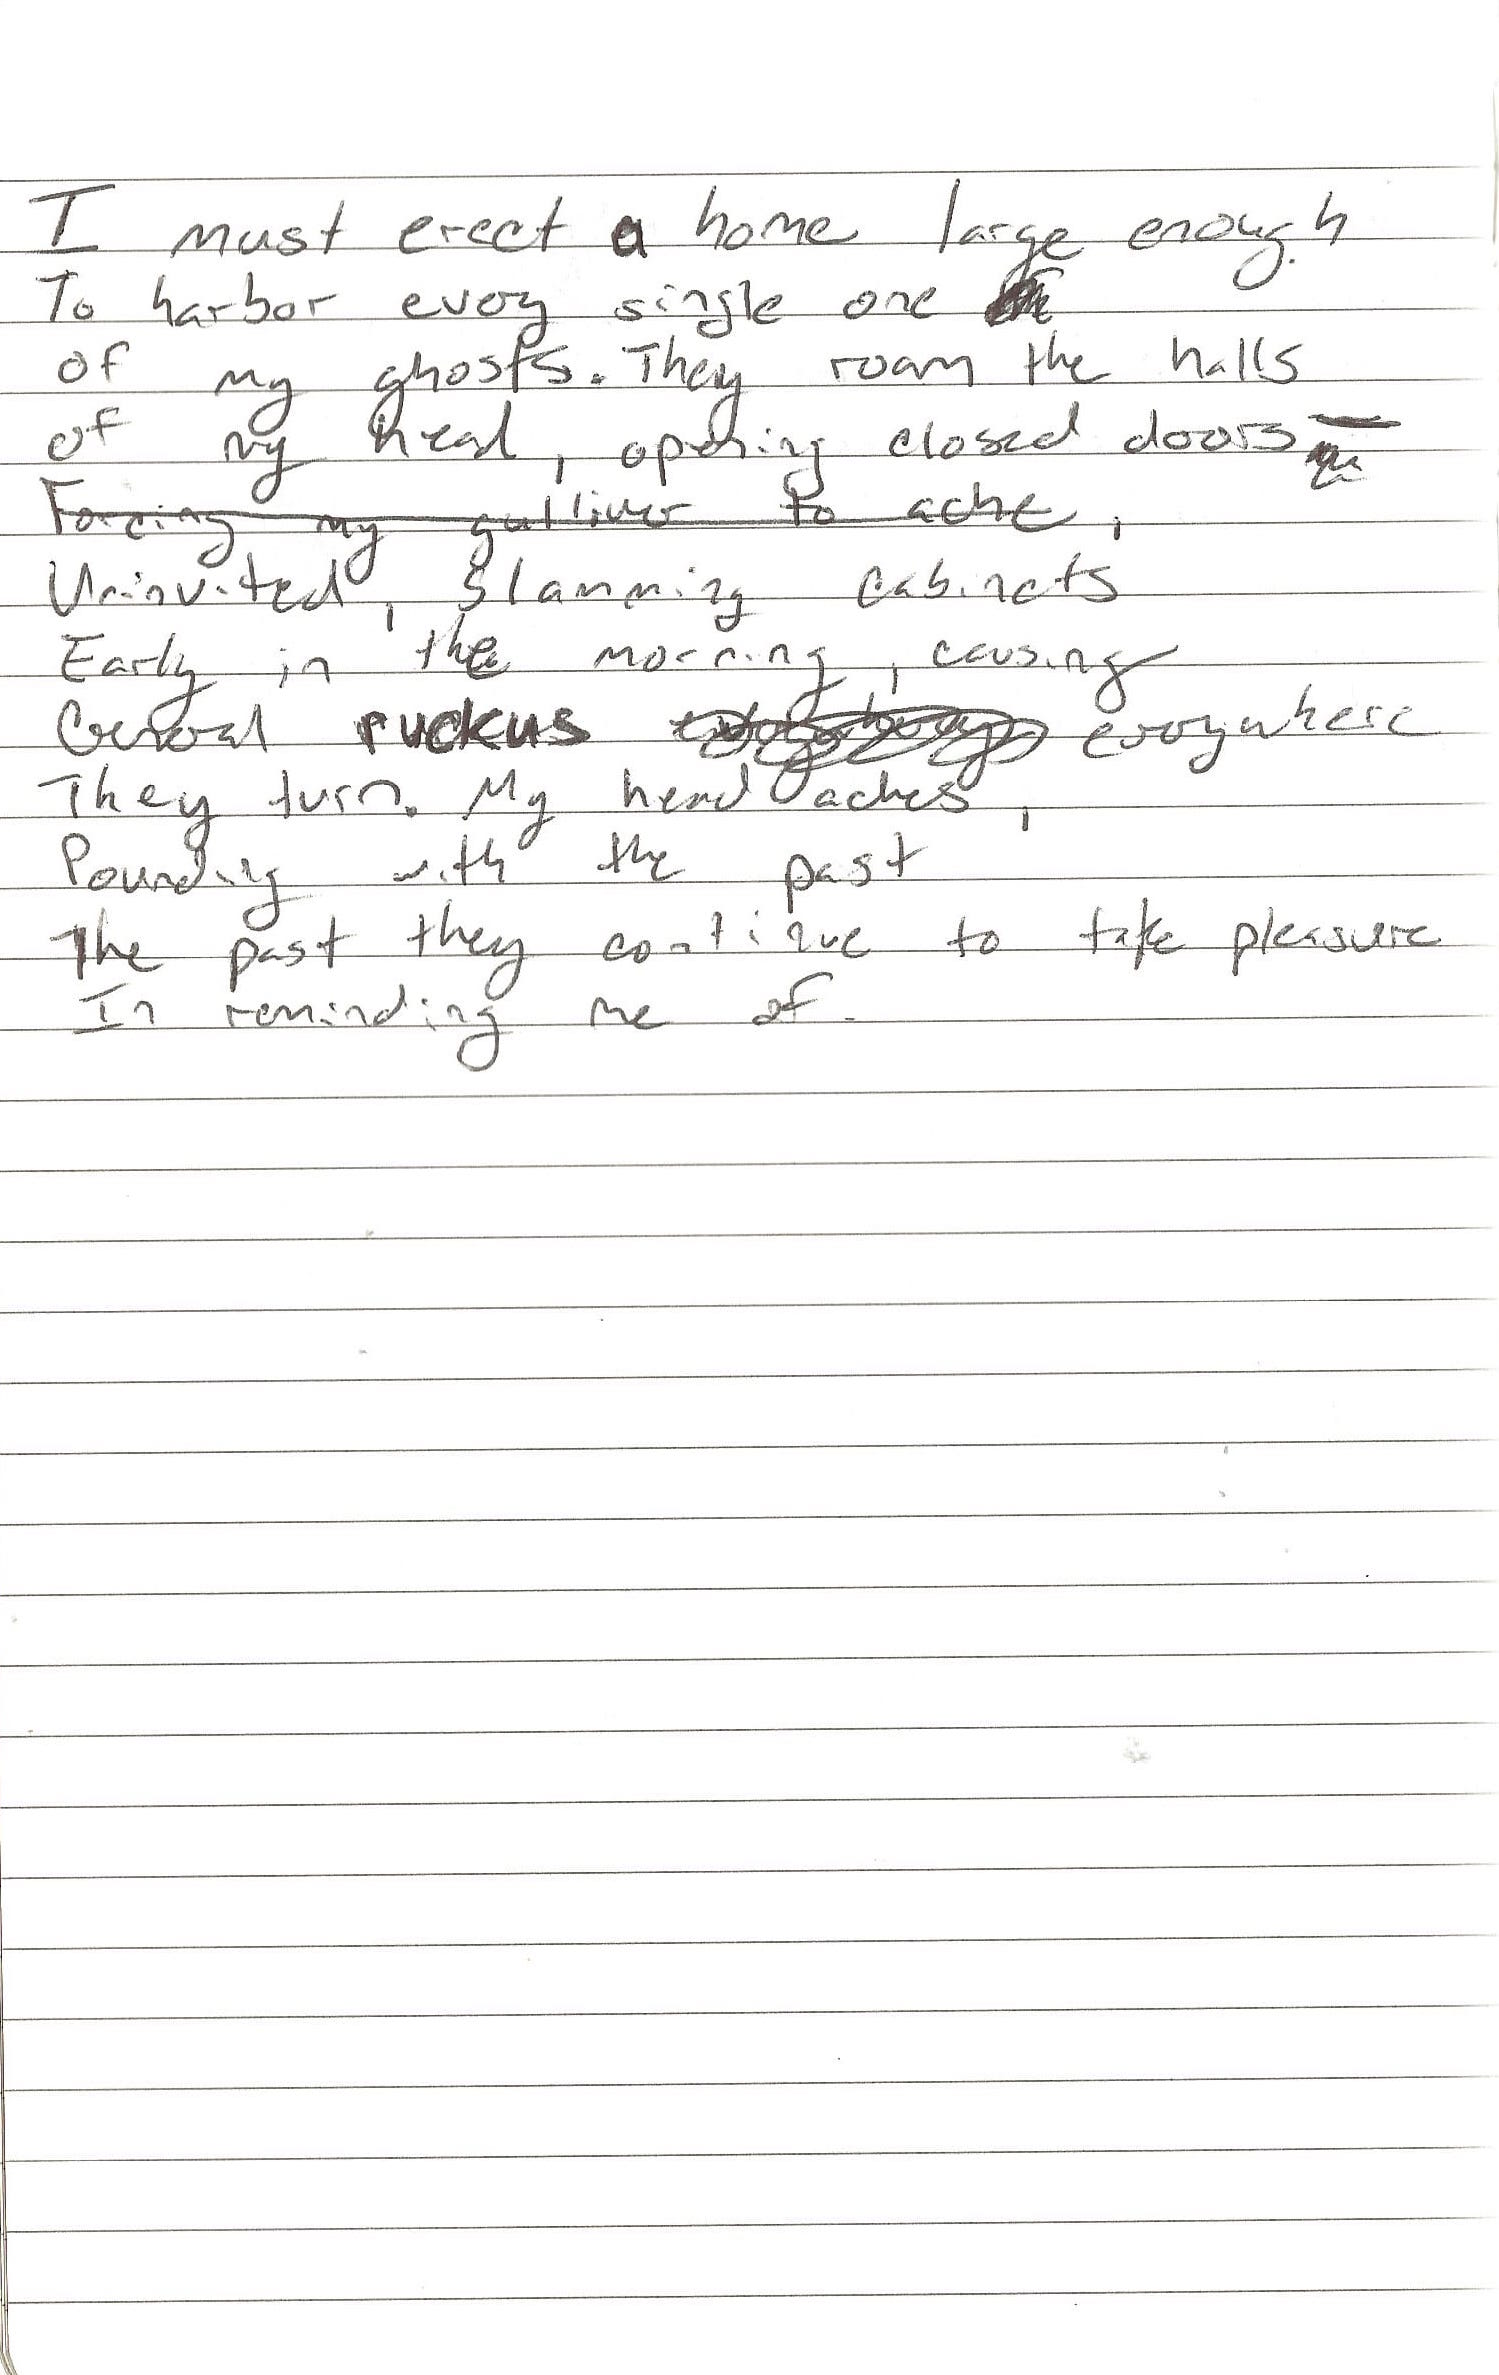 I must erect a home large enough
To harbor every single one
of my ghosts. They roam the halls
of my head, opening closed doors
Forcing my gulliver to ache,
Uninvited, slamming cabinets
Early in the morning, causing
General ruckus everywhere
They turn. My head aches,
Pounding with the past
The past they continue to take pleasure
In reminding me of.